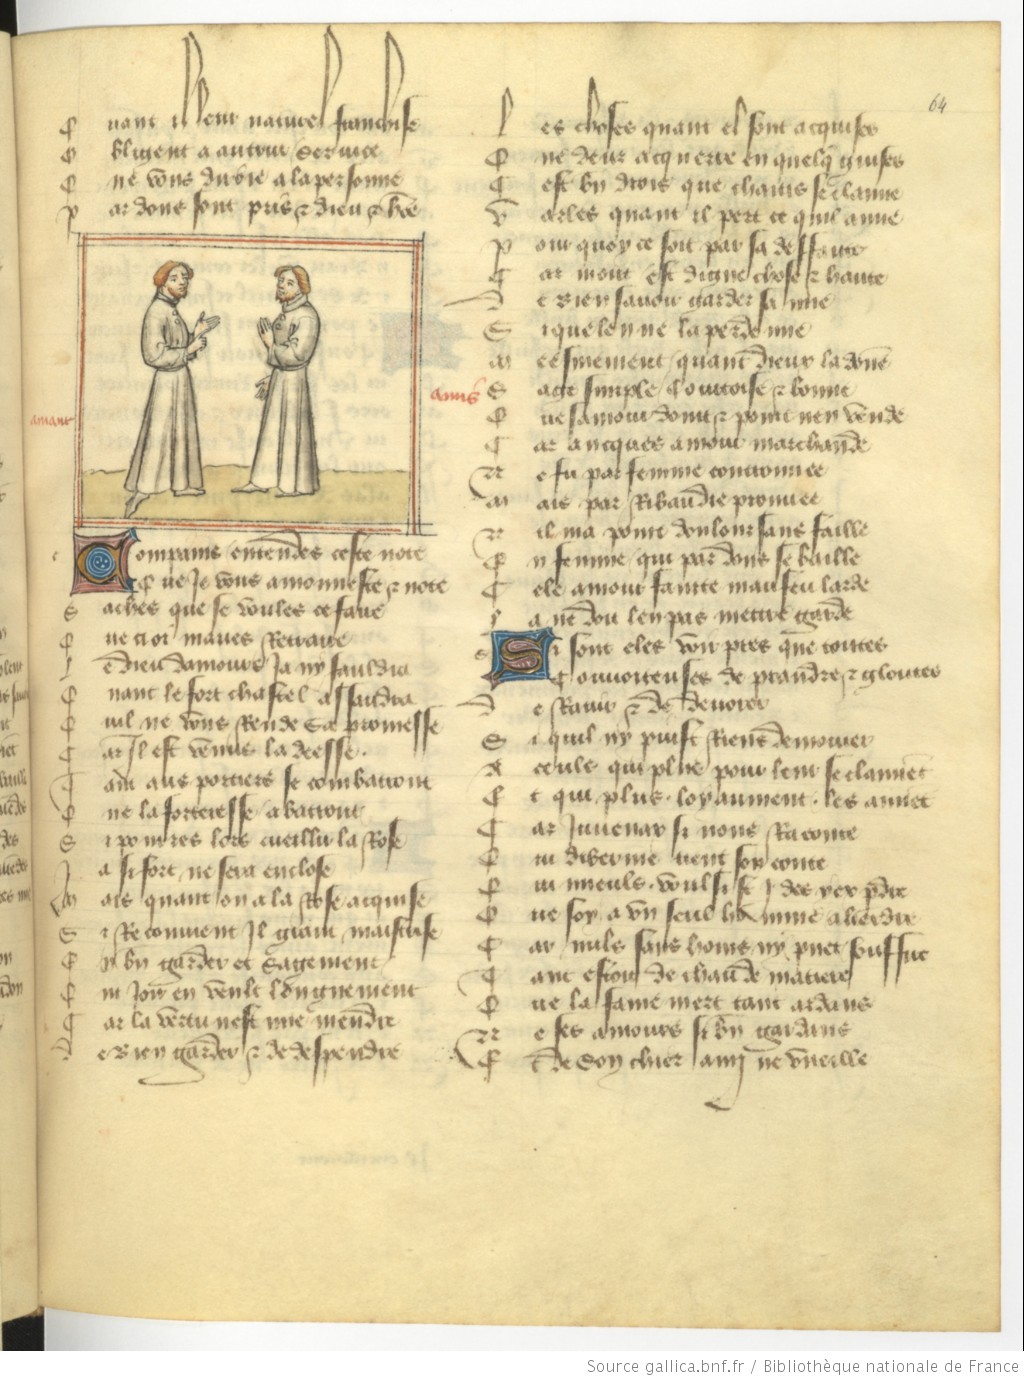 64
Quant il leur nature franchise
Obligent a autrui service
Que vous diroie a la personne
Par dons sont pris et dieu et hõe
amant
amis
Compains entendes ceste note
Que Je vous amonneste et note
Saches que se voules ce faire
Que ci oi maues Retraire
Le dieu damours Ja ny fauldra
Quant le fort chastel assaudra
Quil ne vous Rende Sa promesse
Car Il est venus la deesse
Tant aus portiers se combatront
Que la forteresse abatront
Si pourres lors cueillir la Rose
Ja si fort ne sera enclose
Mais quant on a la Rose acquise
Si Reconvient Il grant maistrise
En bñ garder et Sagement
Qui Joir en veult longuement
Car la vertu nest mie mendre
De Bien garder et de despendre
Les choses quant el sont acquises
Que deur acquerre en quelq̃ guises
Cest bñ drois que chaitis se clame
Varles quant il pert ce quil aime
Pour quoy ce soit par sa deffaute
Car mout est digne chose et haute
De Bien savoir garder samie
Si que len ne la perde mie
Meesmement quant Dieux la done
Sage simple Courtoise et bonne
Que samour doint et point nen vende
Car ancques amour marchande
Ne fu par femme controuvee
Mais par Ribaudie prouvee
Nil ma point doulour sans faille
En femme qui par dons se baille
Cele amour fainte mau feu larde
La ne dou len pas mettre garde
Si sont eles voir pres que toutes
Convoiteuses de prandre et gloutes
De Ravir et de devorer
Si quil ny puist Riens demourer
A ceuls qui plus pour leur se clament
Et qui plus loyaument les aiment
Car Juvenax si nous Raconte
Qui diberine tient son conte
Qui mieuls voulsist J des yex pdre
Que soy a vn seul homme aherdre
Car nuls sans homs ny puet souffire
Tant estoit de chaude matiere
Que la fame niert tant ardans
Ne ses amours si bñ gardans
Et de Son chier ami ne vueille
Source gallica.bnf.fr / Bibliothèque nationale de France